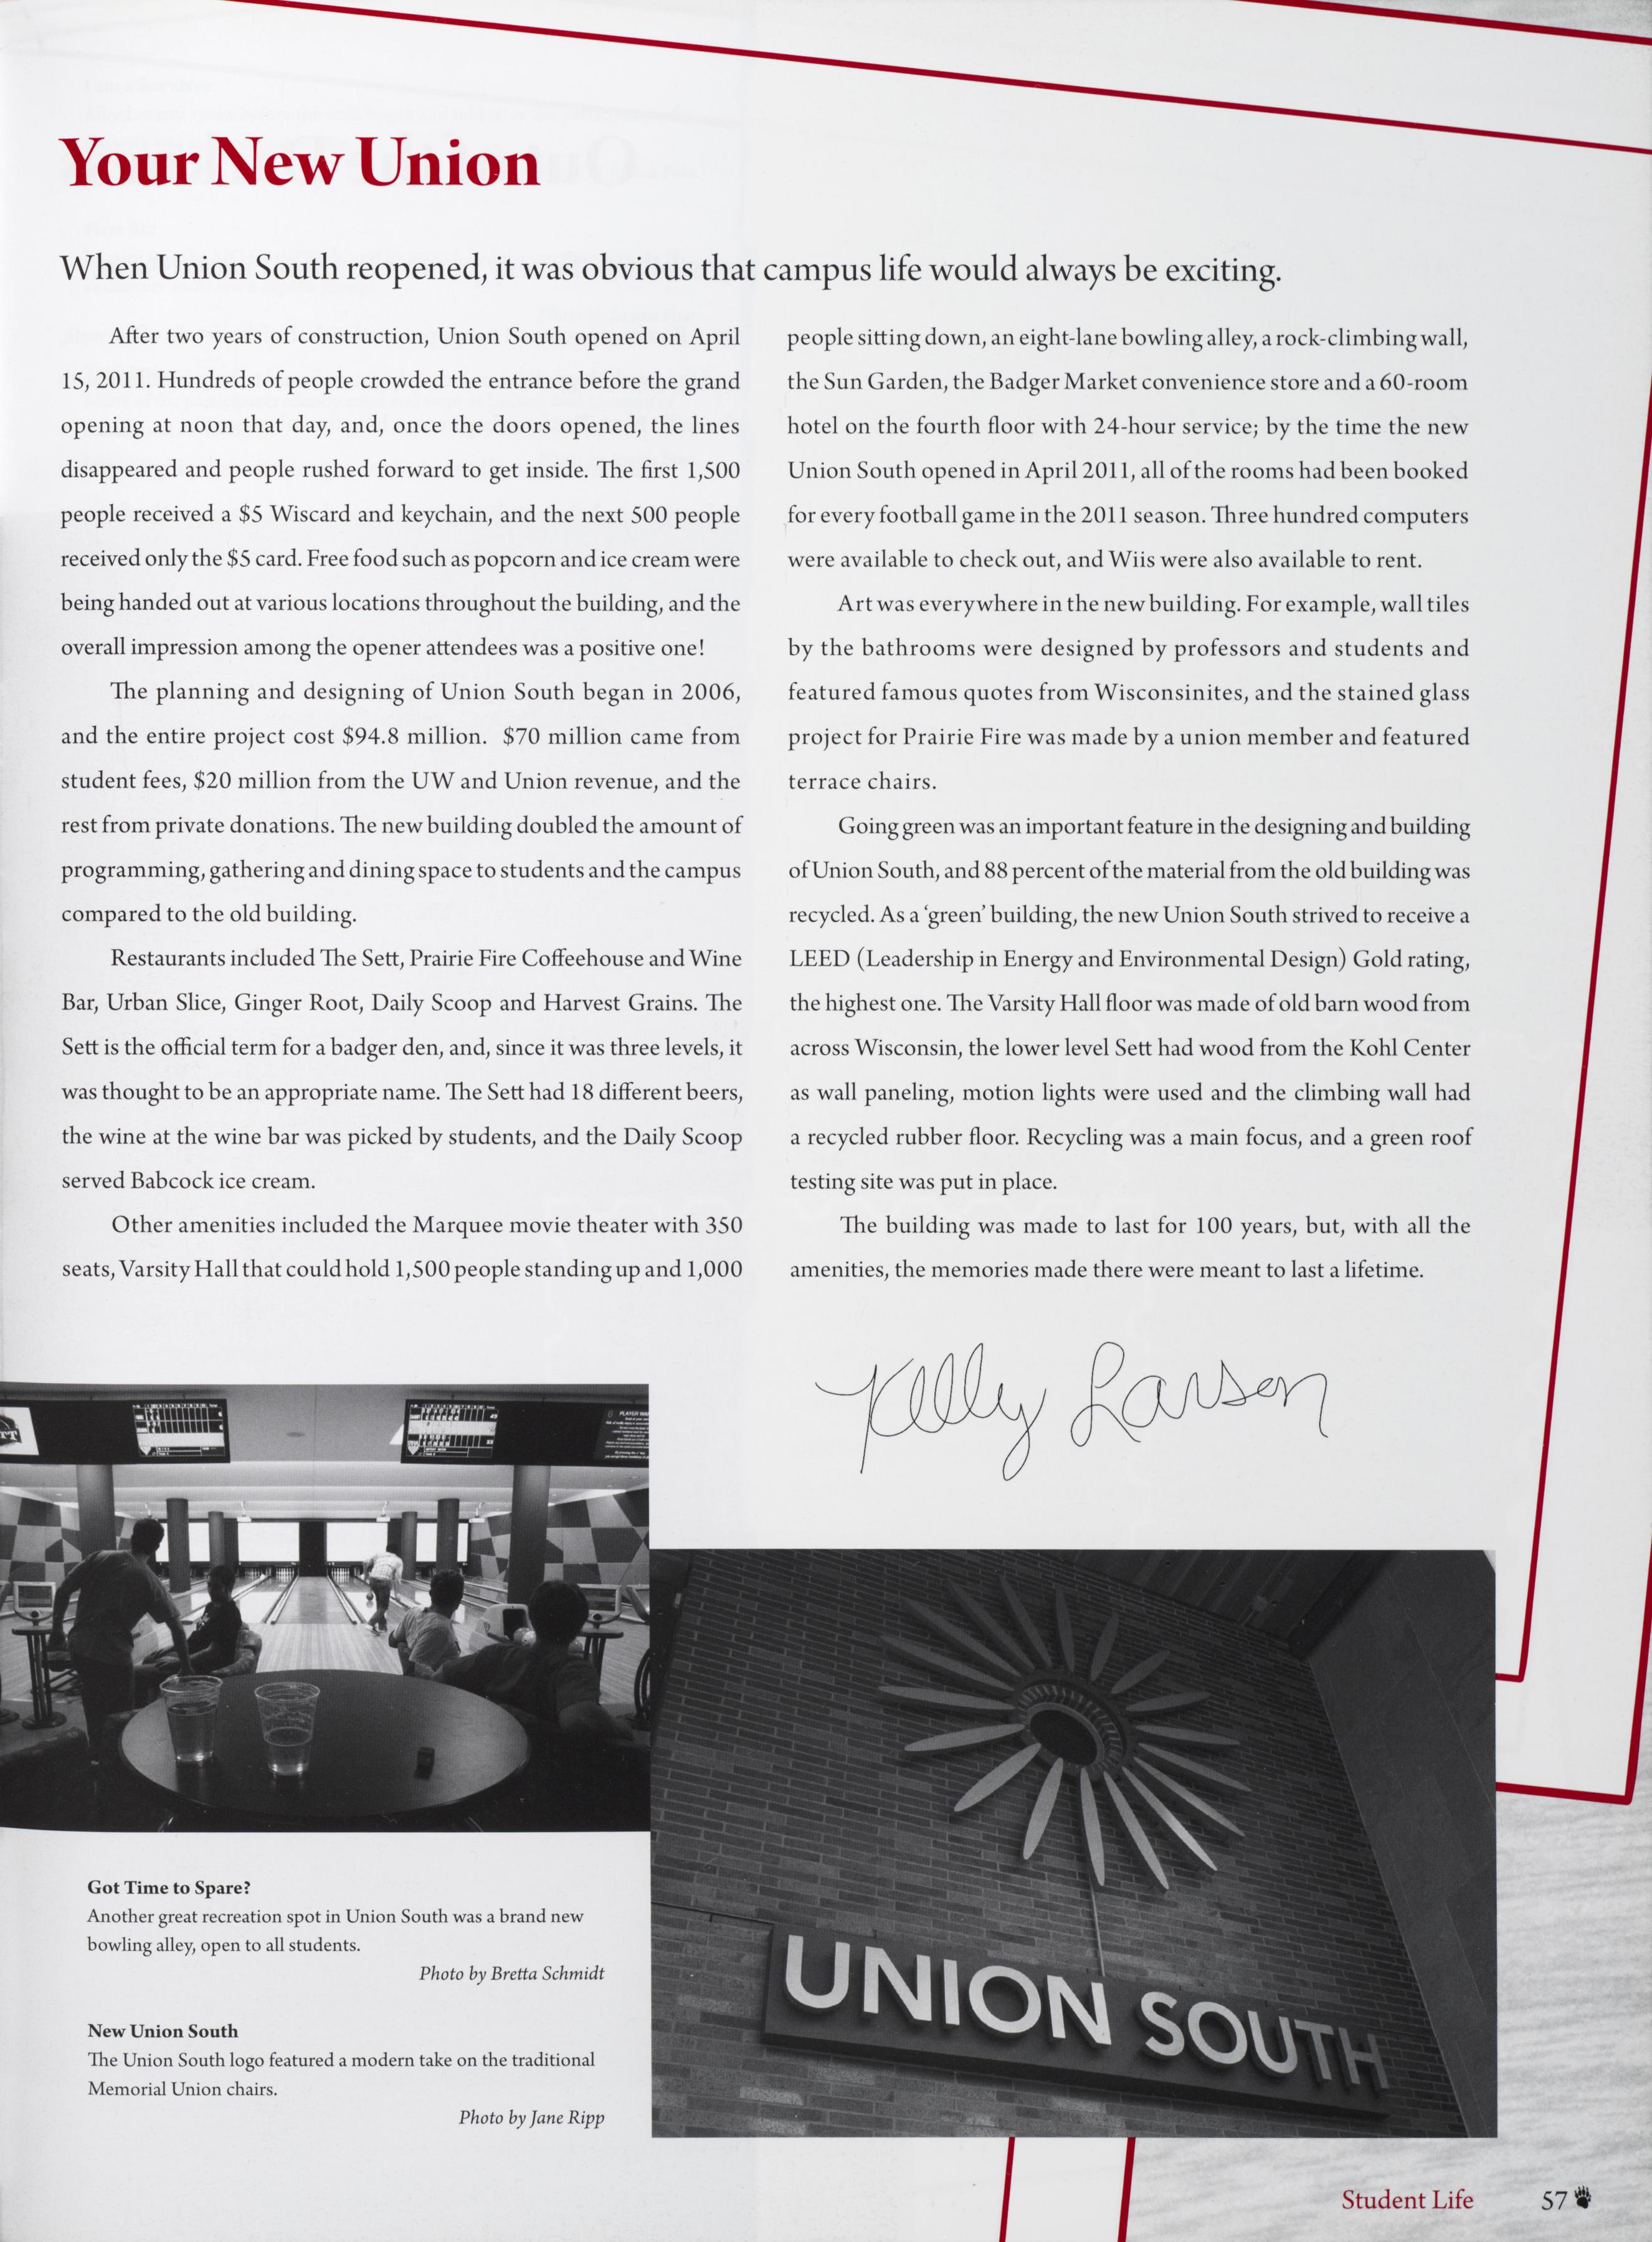 Your New Union
When Union South reopened, it was obvious that campus life would always be exciting.
After two years of construction, Union South opened on April
15, 2011. Hundreds of people crowded the entrance before the grand
opening at noon that day, and, once the doors opened, the lines
disappeared and people rushed forward to get inside. The first 1,500
people received a $5 Wiscard and keychain, and the next 500 people
received only the $5 card. Free food such as popcorn and ice cream were
being handed out at various locations throughout the building, and the
overall impression among the opener attendees was a positive one!
The planning and designing of Union South began in 2006,
and the entire project cost $94.8 million. $70 million came from
student fees, $20 million from the UW and Union revenue, and the
rest from private donations. The new building doubled the amount of
programming, gathering and dining space to students and the campus
compared to the old building.
Restaurants included The Sett, Prairie Fire Coffeehouse and Wine
Bar, Urban Slice, Ginger Root, Daily Scoop and Harvest Grains. The
Sett is the official term for a badger den, and, since it was three levels, it
was thought to be an appropriate name. The Sett had 18 different beers,
the wine at the wine bar was picked by students, and the Daily Scoop
served Babcock ice cream.
Other amenities included the Marquee movie theater with 350
seats, Varsity Hall that could hold 1,500 people standing up and 1,000
people sitting down, an eight-lane bowling alley, a rock-climbing wall,
the Sun Garden, the Badger Market convenience store and a 60-room
hotel on the fourth floor with 24-hour service; by the time the new
Union South opened in April 2011, all of the rooms had been booked
for every football game in the 2011 season. Three hundred computers
were available to check out, and Wiis were also available to rent.
Art was everywhere in the new building. For example, wall tiles
by the bathrooms were designed by professors and students and
featured famous quotes from Wisconsinites, and the stained glass
project for Prairie Fire was made by a union member and featured
terrace chairs.
Going green was an important feature in the designing and building
of Union South, and 88 percent of the material from the old building was
recycled. As a ‘green’ building, the new Union South strived to receive a
LEED (Leadership in Energy and Environmental Design) Gold rating,
the highest one. The Varsity Hall floor was made of old barn wood from
across Wisconsin, the lower level Sett had wood from the Kohl Center
as wall paneling, motion lights were used and the climbing wall had
a recycled rubber floor. Recycling was a main focus, and a green roof
testing site was put in place.
The building was made to last for 100 years, but, with all the
amenities, the memories made there were meant to last a lifetime.
Kelly Larson
Got Time to Spare?
Another great recreation spot in Union South was a brand new
bowling alley, open to all students.
Photo by Bretta Schmidt
New Union South
The Union South logo featured a modern take on the traditional
Memorial Union chairs.
Photo by Jane Ripp
UNION SOUTH
Student Life 57